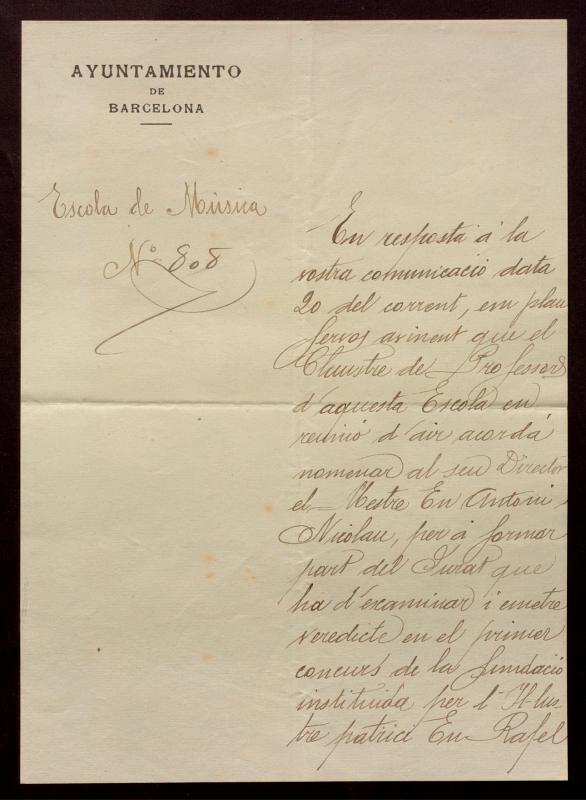 AYUNTAMIENTO
DE
BARCELONA
Escola de Música
Nº 808
En resposta á la
vostra comunicació data
20 del corrent, em plau
fervos avinent que el
Claustre de Professors
d'aquesta Escola en
reunió d'air acordá
nomenar al seu Director
el Mestre En Antoni
Nicolau, per á formar
part del Jurat que
ha d'examinar i emetre
veredicte en el primer
concurs de la fundació
instituida per l'Il-lus
tre patrici En Rafel